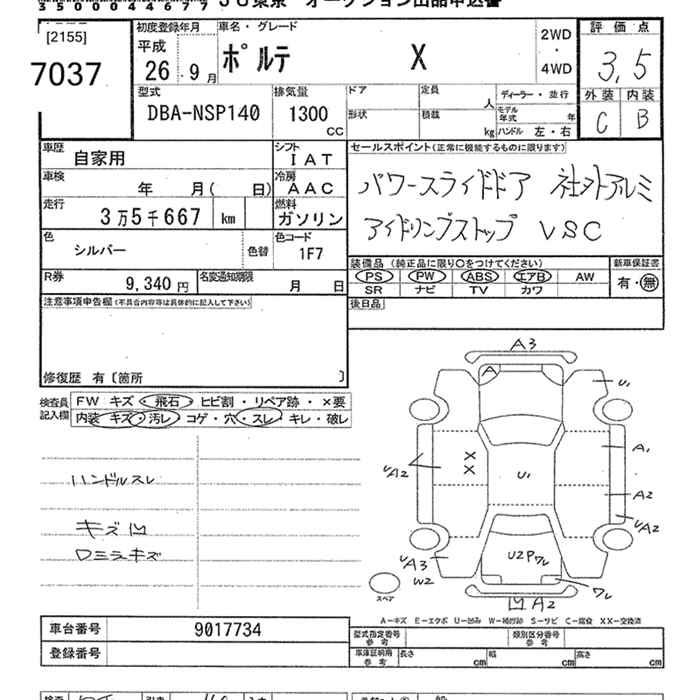 3500044677 JU東京 オークション出品申込書
[2155]
7037
初度登録年月
平成
26 . 9 月
車名・グレード
ポルテ X
2WD
・
4WD
評価点
3,5
外装 内装
C B
型式
DBA-NSP140
排気量
1300
CC
ドア
形状
定員
人
積載
kg
ディーラー・並行
モデル年式 年
ハンドル 左・右
車歴
自家用
シフト
IAT
車検
年 月( 日)
冷房
AAC
走行
3万5千667 km
燃料
ガソリン
色
シルバー
色替
色コード
1F7
R券
9,340 円
名変通知期限
月 日
セールスポイント(正常に機能するものに限ります)
パワースライドドア 社外アルミ
アイドリングストップ VSC
装備品(純正品に限り〇をつけてください)
PS PW ABS エアB AW
SR ナビ TV カワ
新車保証書
有・無
後日品
注意事項申告欄(不具合内容等は具体的に記入して下さい)
修復歴 有〔箇所 〕
検査員記入欄
FW キズ・飛石・ヒビ割・リペア跡・×要
内装 キズ・汚レ・コゲ・穴・スレ・キレ・破レ
ハンドルスレ
キズ凹
ロミラキズ
A3
A
U1
A1
UA2
X
X
U1
A2
UA2
UA3
W2
U2Pワレ
ワレ
凹A2
スペア
A-キズ E-エクボ U-凹み W-補修跡 S-サビ C-腐食 XX-交換済
車台番号 9017734
登録番号
型式指定番号
参考
類別区分番号
参考
車庫証明用
参考
長さ cm 幅 cm 高さ cm